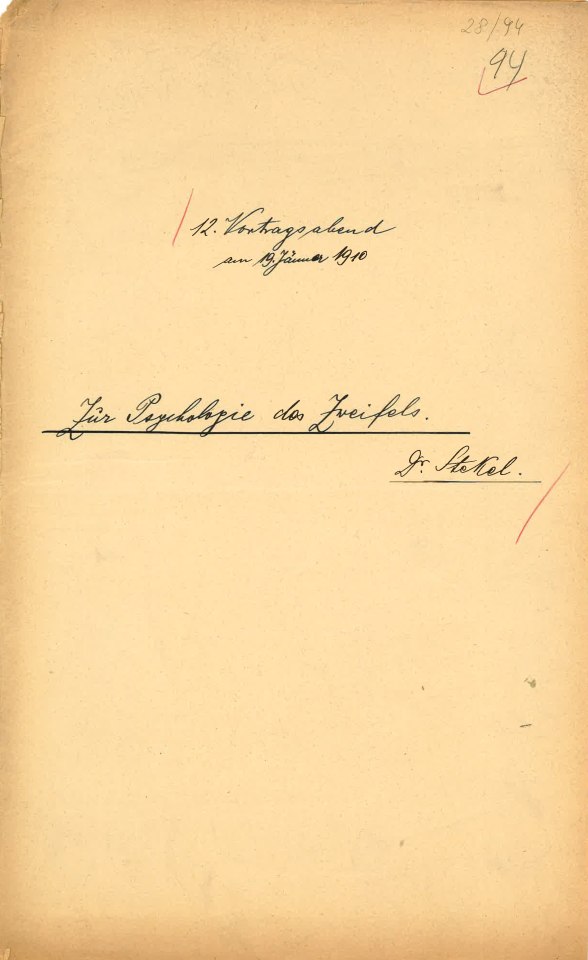 28/94
94
12. Vortragsabend
am 19. Jänner 1910
Zur Psychologie des Zweifels.
Dr. Stekel.